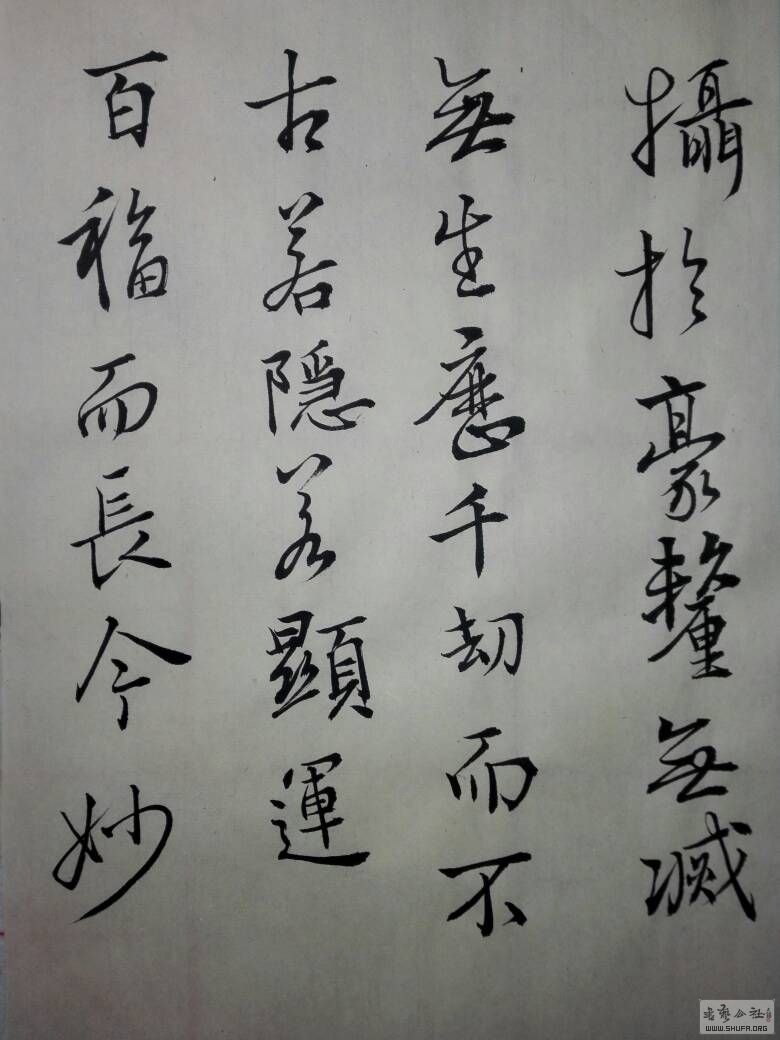 攝於豪釐無滅
無生應千劫而不
古若隱若顯運
百福而長今妙
WWW.SHUFA.ORG